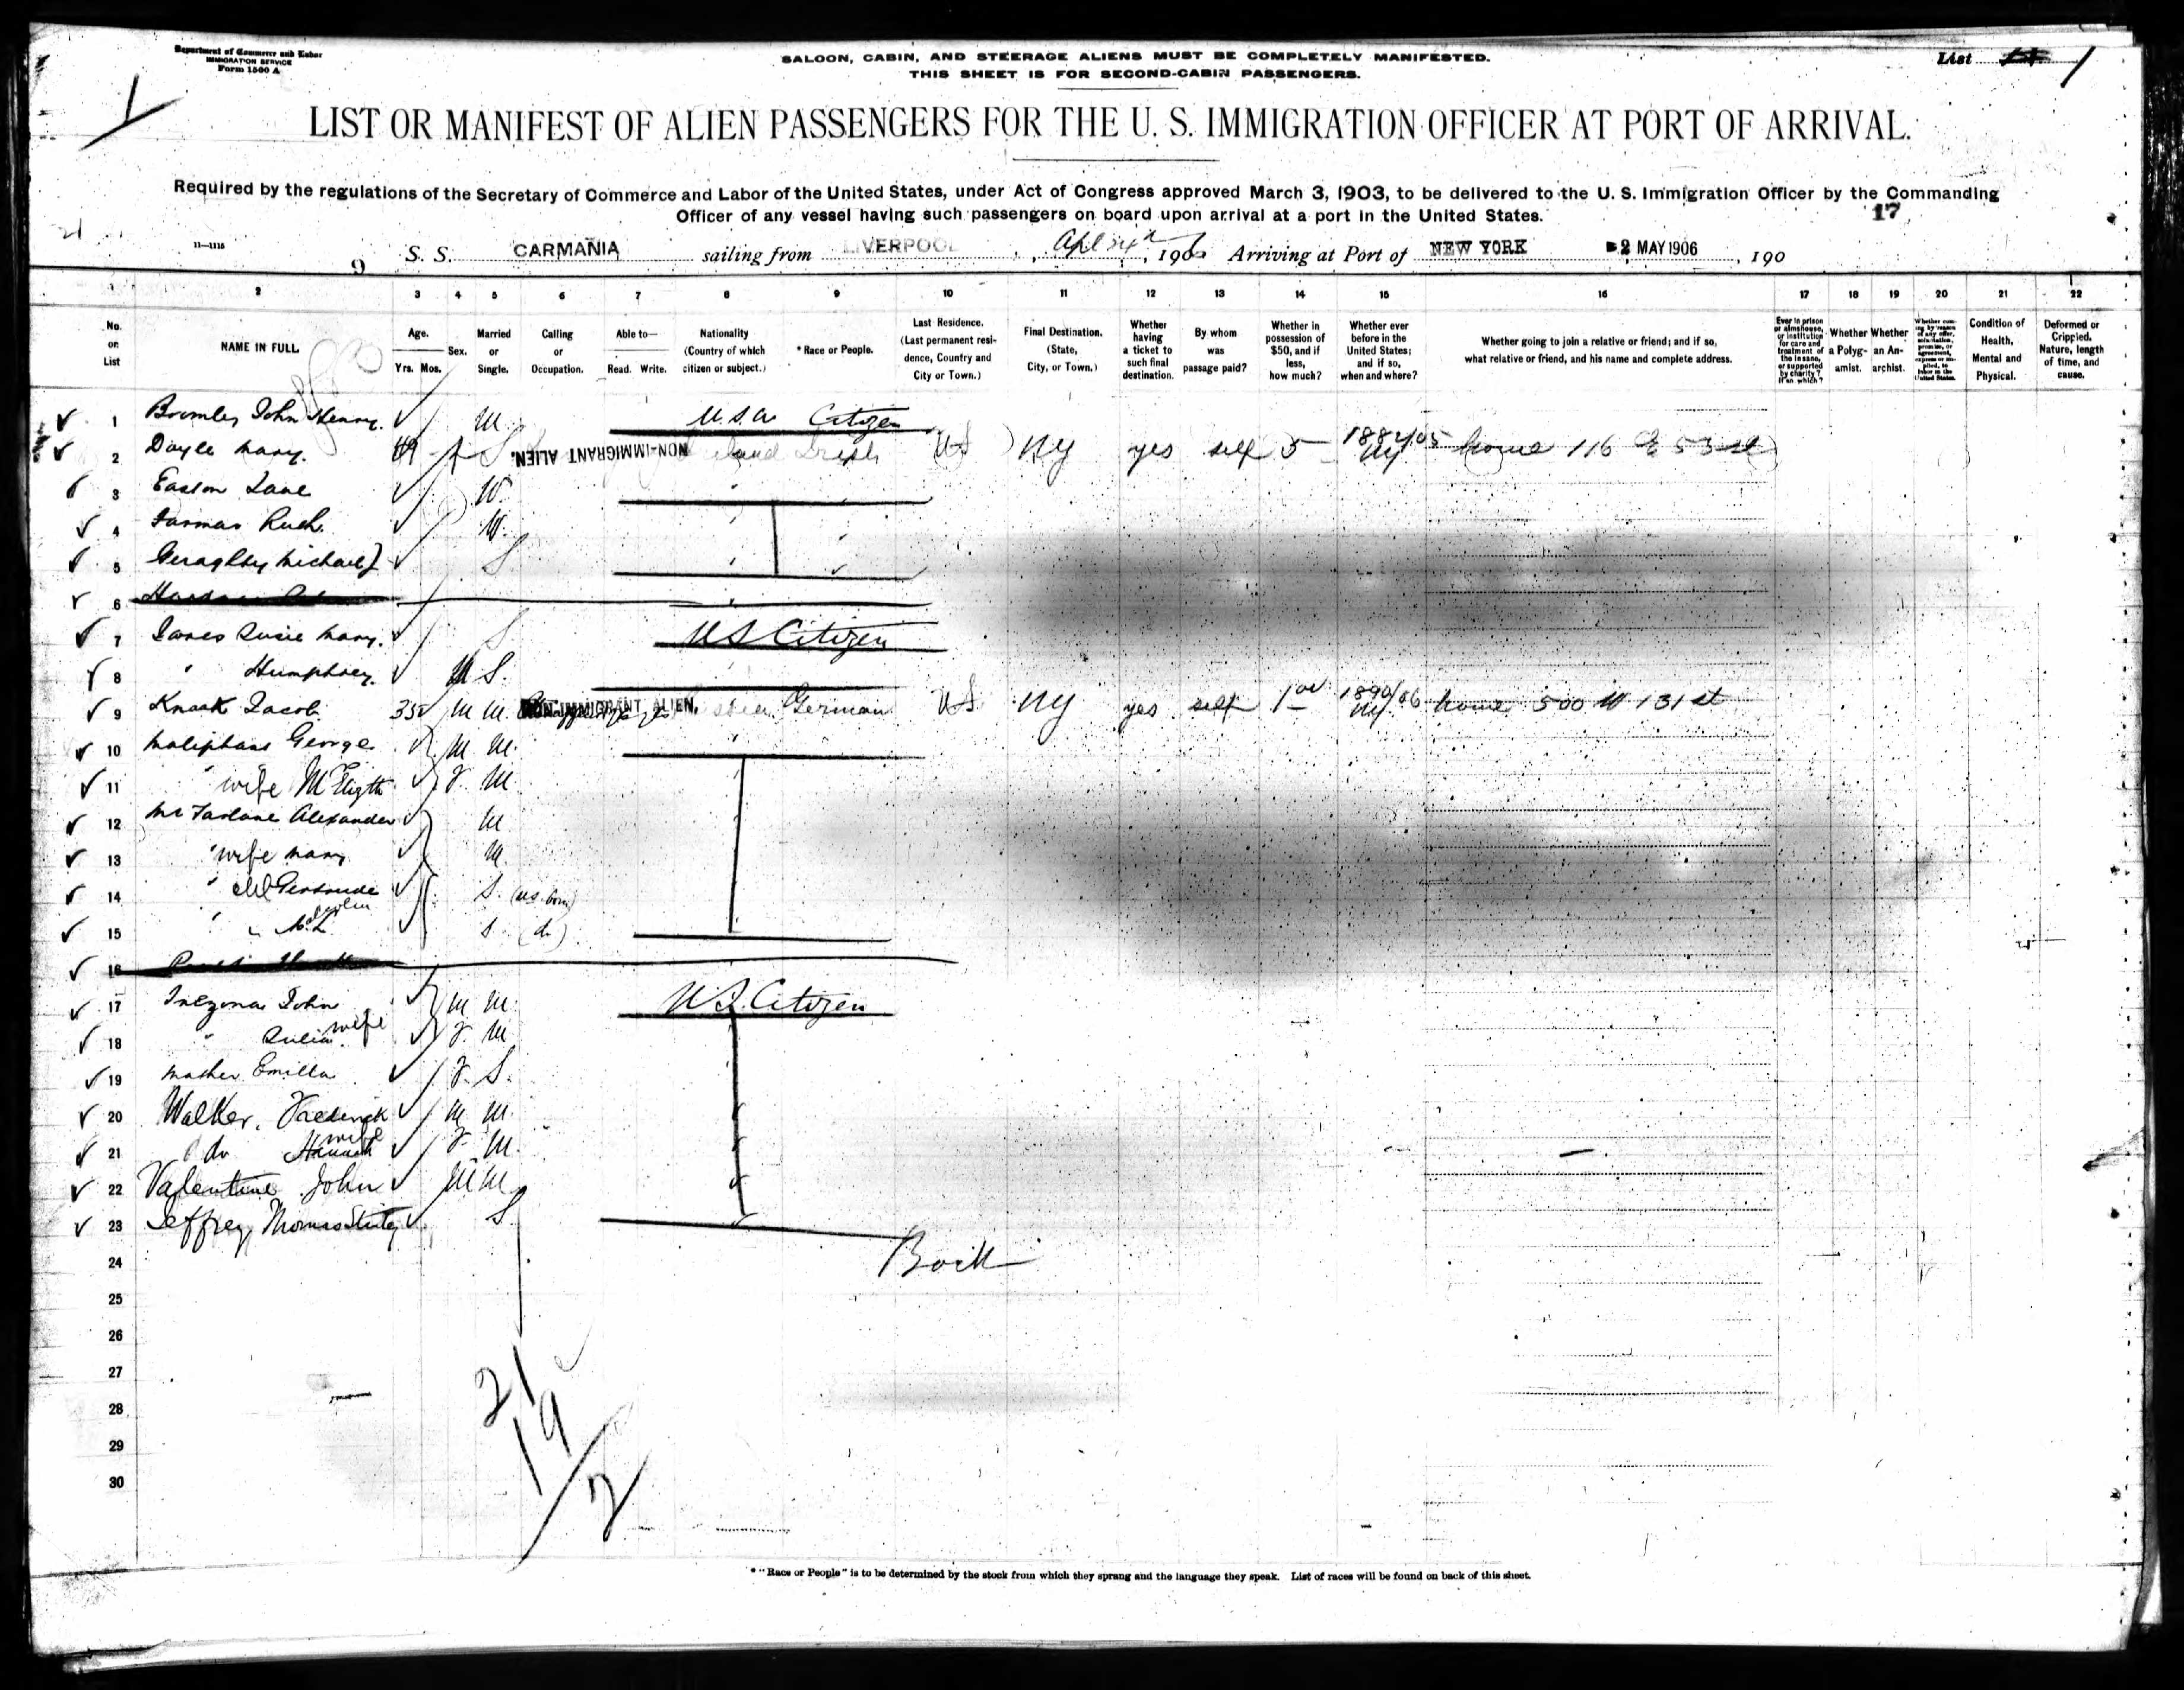 Department of Commerce and Labor
IMMIGRATION SERVICE
Form 1500 A
SALOON, CABIN, AND STEERAGE ALIENS MUST BE COMPLETELY MANIFESTED.
THIS SHEET IS FOR SECOND-CABIN PASSENGERS.
List 1
LIST OR MANIFEST OF ALIEN PASSENGERS FOR THE U. S. IMMIGRATION OFFICER AT PORT OF ARRIVAL.
Required by the regulations of the Secretary of Commerce and Labor of the United States, under Act of Congress approved March 3, 1903, to be delivered to the U. S. Immigration Officer by the Commanding
Officer of any vessel having such passengers on board upon arrival at a port in the United States.
17
11—1115
9 S. S. CARMANIA sailing from LIVERPOOL, 1906 Arriving at Port of NEW YORK 2 MAY 1906, 190
1 2 3 4 5 6 7 8 9 10 11 12 13 14 15 16 17 18 19 20 21 22
No. on List
NAME IN FULL
Age. Yrs. Mos.
Sex.
Married or Single.
Calling or Occupation.
Able to— Read. Write.
Nationality (Country of which citizen or subject.)
* Race or People.
Last Residence. (Last permanent residence, Country and City or Town.)
Final Destination. (State, City, or Town.)
Whether having a ticket to such final destination.
By whom was passage paid?
Whether in possession of $50, and if less, how much?
Whether ever before in the United States; and if so, when and where?
Whether going to join a relative or friend; and if so, what relative or friend, and his name and complete address.
Ever in prison or almshouse, or institution for care and treatment of the insane, or supported by charity? If so, which?
Whether a Polygamist.
Whether an Anarchist.
Condition of Health, Mental and Physical.
Deformed or Crippled. Nature, length of time, and cause.
1 John Henry. M U.S.A Citizen
2 Doyle Mary. S NON-IMMIGRANT ALIEN. Irish US NY yes self 5 1882/05 NY home 116 E 53 st
3 Easton Jane W.
4 W.
5 Geraghty Michael J S
6
7 James Susie Mary. S US Citizen
8 " Humphrey. M S.
9 Knaak Jacob 35 M M NON-IMMIGRANT ALIEN. German US NY yes self 100 1890/06 NY home 500 W 131 st
10 Maliphant George M M.
11 " wife M M
12 McFarlane Alexander M
13 " wife Mary M.
14 " Gertrude S. (US born)
15 S (do)
16
17 John M M. US Citizen
18 " Julia wife M
19 Mather Emilla S.
20 Walker, Frederick M M.
21 do Hannah wife M.
22 Valentine John M M
23 Jeffrey, Thomas S
24
25
26
27
28
29
30
21
19
2
* "Race or People" is to be determined by the stock from which they sprang and the language they speak. List of races will be found on back of this sheet.